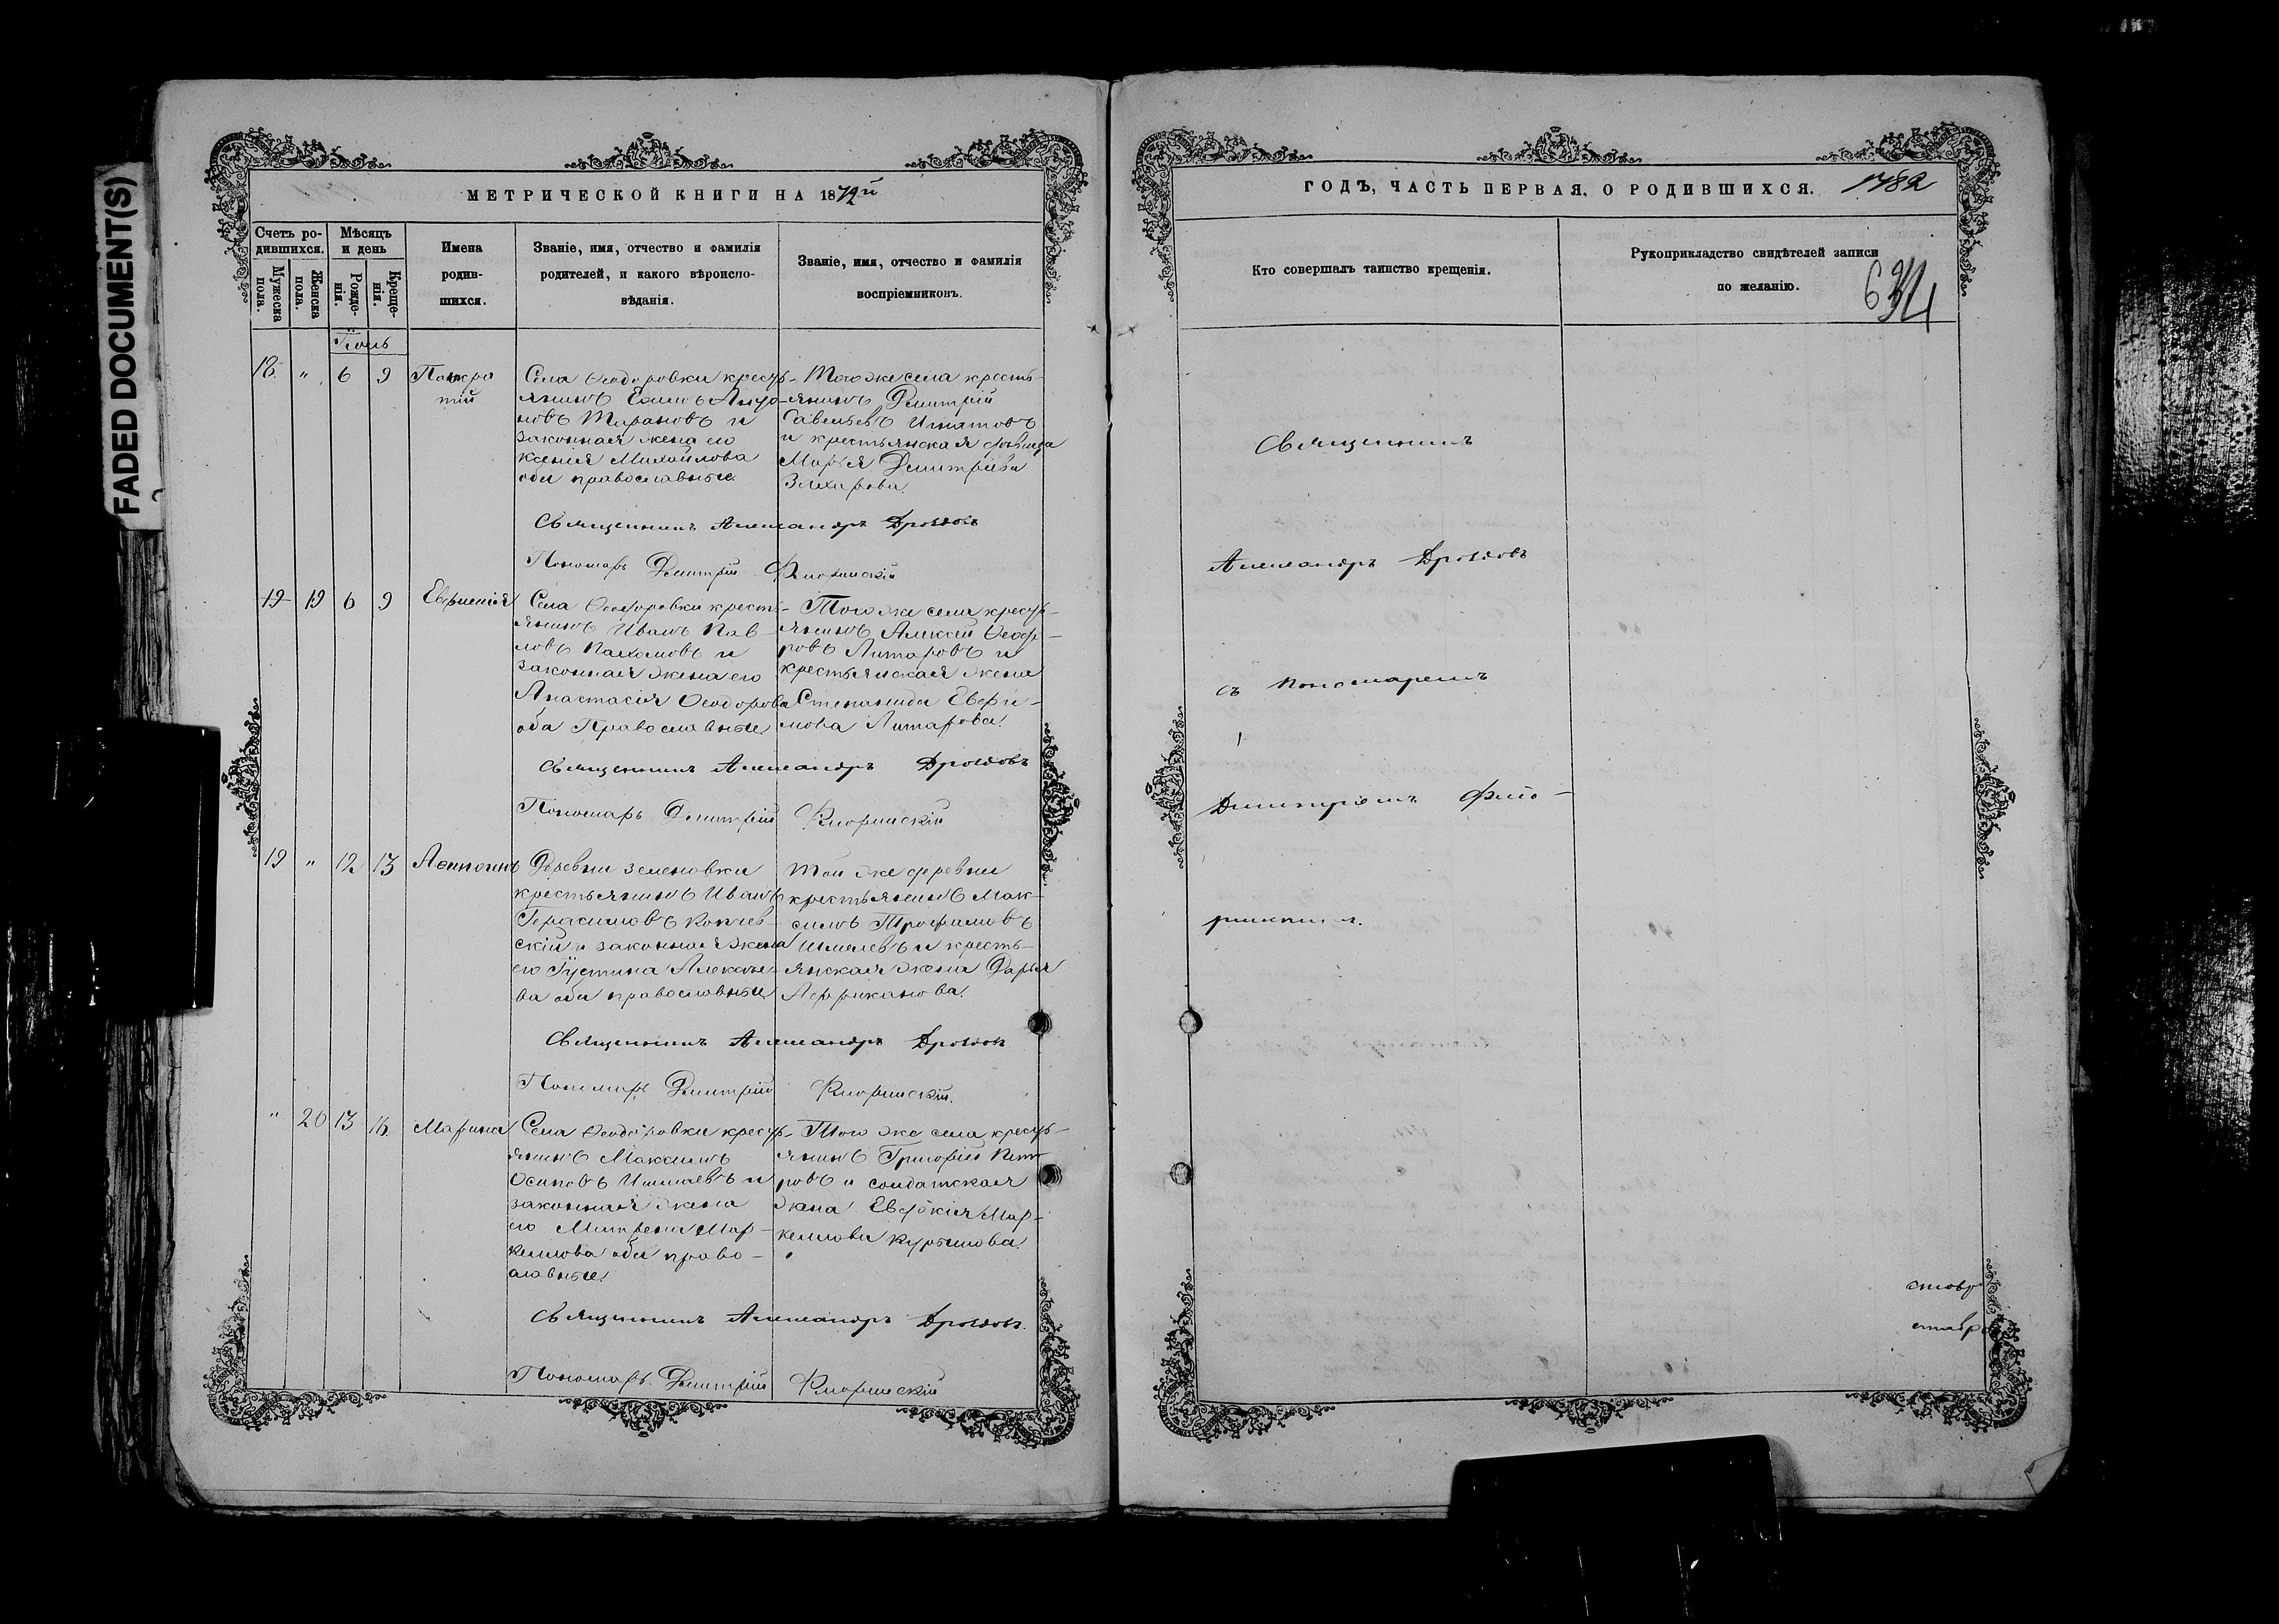 FADED DOCUMENT(S)
МЕТРИЧЕСКОЙ КНИГИ НА 1872й
Счетъ ро-
дившихся.
Мужеска
пола.
Женска
пола.
Мѣсяцъ
и день
Рожде-
нія.
Креще-
нія.
Имена
родив-
шихся.
Званіе, имя, отчество и фамилія
родителей, и какого вѣроиспо-
вѣданія.
Званіе, имя, отчество и фамилія
воспріемниковъ.
18. " 6 9
Села Ѳеодоровки крестъ-
янинъ
и
законная жена его
Ксенія Михайлова
оба православные.
Тогоже села кресть-
янинъ Дмитрій
Савельевъ Игнатовъ
и крестьянская дѣвица
Марья Дмитріева
Священникъ Александръ Дроздовъ
Пономарь Дмитрій Флоринскій
19 19 6 9
Села Ѳеодоровки кресть-
янинъ Иванъ Пав-
ловъ Пахомовъ и
законная жена его
Анастасія Ѳеодорова
оба Православные.
Того же села кресть-
янинъ Алексѣй Ѳеодо-
ровъ Литаровъ и
крестьянская жена
Степанида Евфи-
мова Литарова.
Священникъ Александръ Дроздовъ
Пономарь Дмитрій Флоринскій
19 " 12 13
Деревни Зеленовки
крестьянинъ Иванъ
Герасимовъ
скій и законная жена
его Іустина Алексѣе-
ва оба православные
Той же деревни
крестьянинъ Мак-
симъ Трофимовъ
и кресть-
янская жена Дарья
Африканова.
Священникъ Александръ Дроздовъ
Пономарь Дмитрій Флоринскій.
" 20 13 16. Марина
Села Ѳеодоровки кресть-
янинъ Максимъ
Осиповъ и
законная жена
его Матрена Мар-
келлова оба право-
славные.
Того же села кресть-
янинъ Григорій Пет-
ровъ и солдатская
жена Евдокія Мар-
келлова
Священникъ Александръ Дроздовъ.
Пономарь Дмитрій Флоринскій
ГОДЪ, ЧАСТЬ ПЕРВАЯ, О РОДИВШИХСЯ. 1782
Кто совершалъ таинство крещенія.
Рукоприкладство свидѣтелей записи
по желанію.
634
Священникъ
Александръ Дроздовъ
съ пономаремъ
Димитріемъ Фло-
ринскимъ.